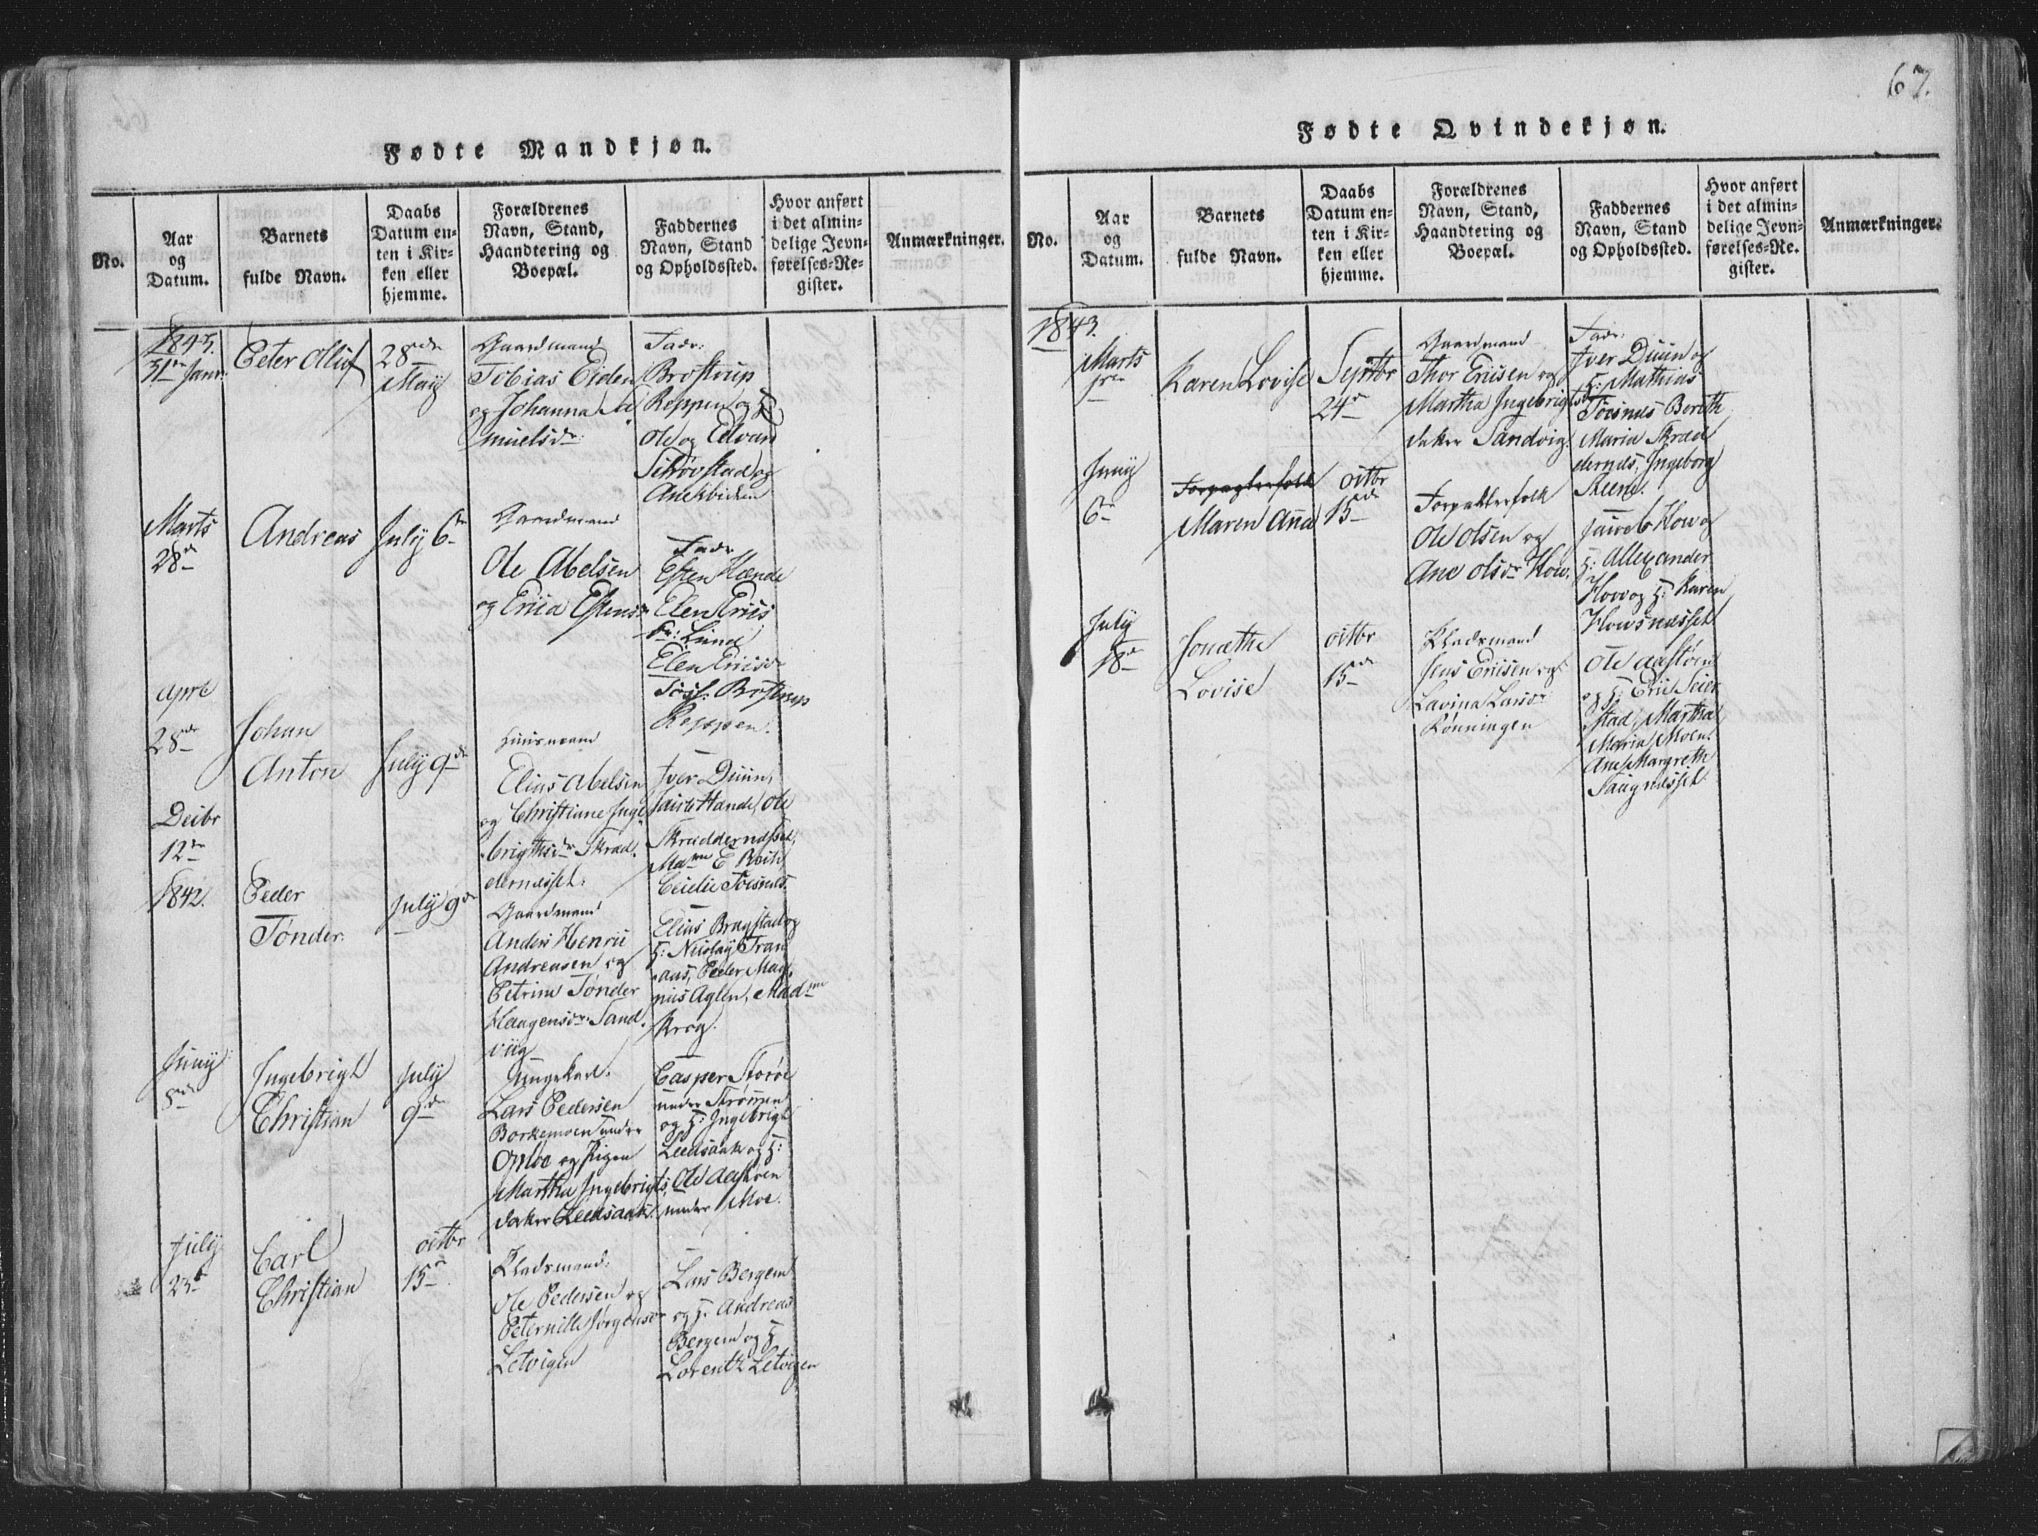 67.
Fødte Mandkjøn.
No.
Aar
og
Datum.
Barnets
fulde Navn.
Daabs
Datum en-
ten i Kir-
ken eller
hjemme.
Forældrenes
Navn, Stand,
Haandtering og
Boepæl.
Faddernes
Navn, Stand
og Opholdssted.
Hvor anført
i det almin-
delige Jevn-
førelses-Re-
gister.
Anmærkninger.
31te Janr
Peter Oluf
28de
May
Gaardmand
Tobias Eiden
og Johanna
Fadr:
Brostrup
Reppen og H:
Ole og Edvard
Marts
28de
Andreas
July 6te
Gaardmand
Ole Abelsen
og Erica Estensdr
Fadr
Esten Hænde
Elen Erics
dr: Lund
Elen Ericsdr
Brostrup
Reppen.
April
28de
Johan
Anton
July 9de
Huusmand
Elias Abelsen
og Christiane Inge
brigthsdr Skrad
dernesset.
Iver Duun,
Hande, Ole
Skraddernesset,
Decbr
12te
1842.
Peder
Tønder.
July 9de
Gaardmand
Anders Henric
Andreasen og
Petrine Tønder
Haagensdr: Sand
viig
Elias Bragstad og
H: Nicolay Tran
aas, Peder Mag
nus Aglen, Madme
Krog.
Juny
8de
Ingebrigt
Christian
July
9de
Ungekarl.
Lars Pedersen
Borkemoen under
Oploe og Pigen
Martha Ingebrigts
datter Leedsaak.
Casper Storøe
under Strømmen
og H: Ingebrigt
Leedsaak og H:
Ole Aaskoen
under Moe.
July
23de
Carl
Christian
octbr
15de
Pladsmand.
Ole Pedersen og
Peternille Jørgensdr
Letvigen
Lars Bergem
og H: Andreas
Bergem og H
Lorentz Letvigen
Fødte Qvindekjøn.
No.
Aar
og
Datum.
Barnets
fulde Navn.
Daabs
Datum en-
ten i Kir-
ken eller
hjemme.
Forældrenes
Navn, Stand,
Haandtering og
Boepæl.
Faddernes
Navn, Stand
og Opholdssted.
Hvor anført
i det almin-
delige Jevn-
førelses-Re-
gister.
Anmærkninger.
1843.
Marts
Karen Lovise
Septbr
24de
Gaardmand
Thor Ericsen og
Martha Ingebrigts
datter Sandvig.
Fadr:
Iver Duun og
H: Mathias
Bereth
Maria Skrad
dernes, Ingeborg
Juny
6te
Forpagterfolk
Maren Ana
octbr
15de
Forpakterfolk
Ole Olsen og
Ane Olsdr How.
Jacob How og
H: Allexander
How og H: Karen
Howsnesset
July
18de
Jonethe
Lovise
octbr
15de
Pladsmand
Jens Ericsen og
Lavina Larsdr
Rønningen
Ole Aaskoen
og H: Eric Seier
stad, Martha
Maria Moen.
Ane Margreth